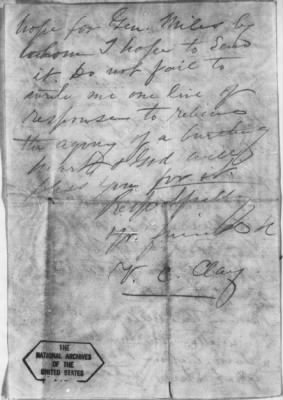 hope for Gen. Miles by
whom I hope to send
it. Do not fail to
write me one line of
response to relieve
the agony of a bursting
heart & God will
bless you for it.
Respectfully
Yr. friend
V. C. Clay
THE
NATIONAL ARCHIVES
OF THE
UNITED STATES